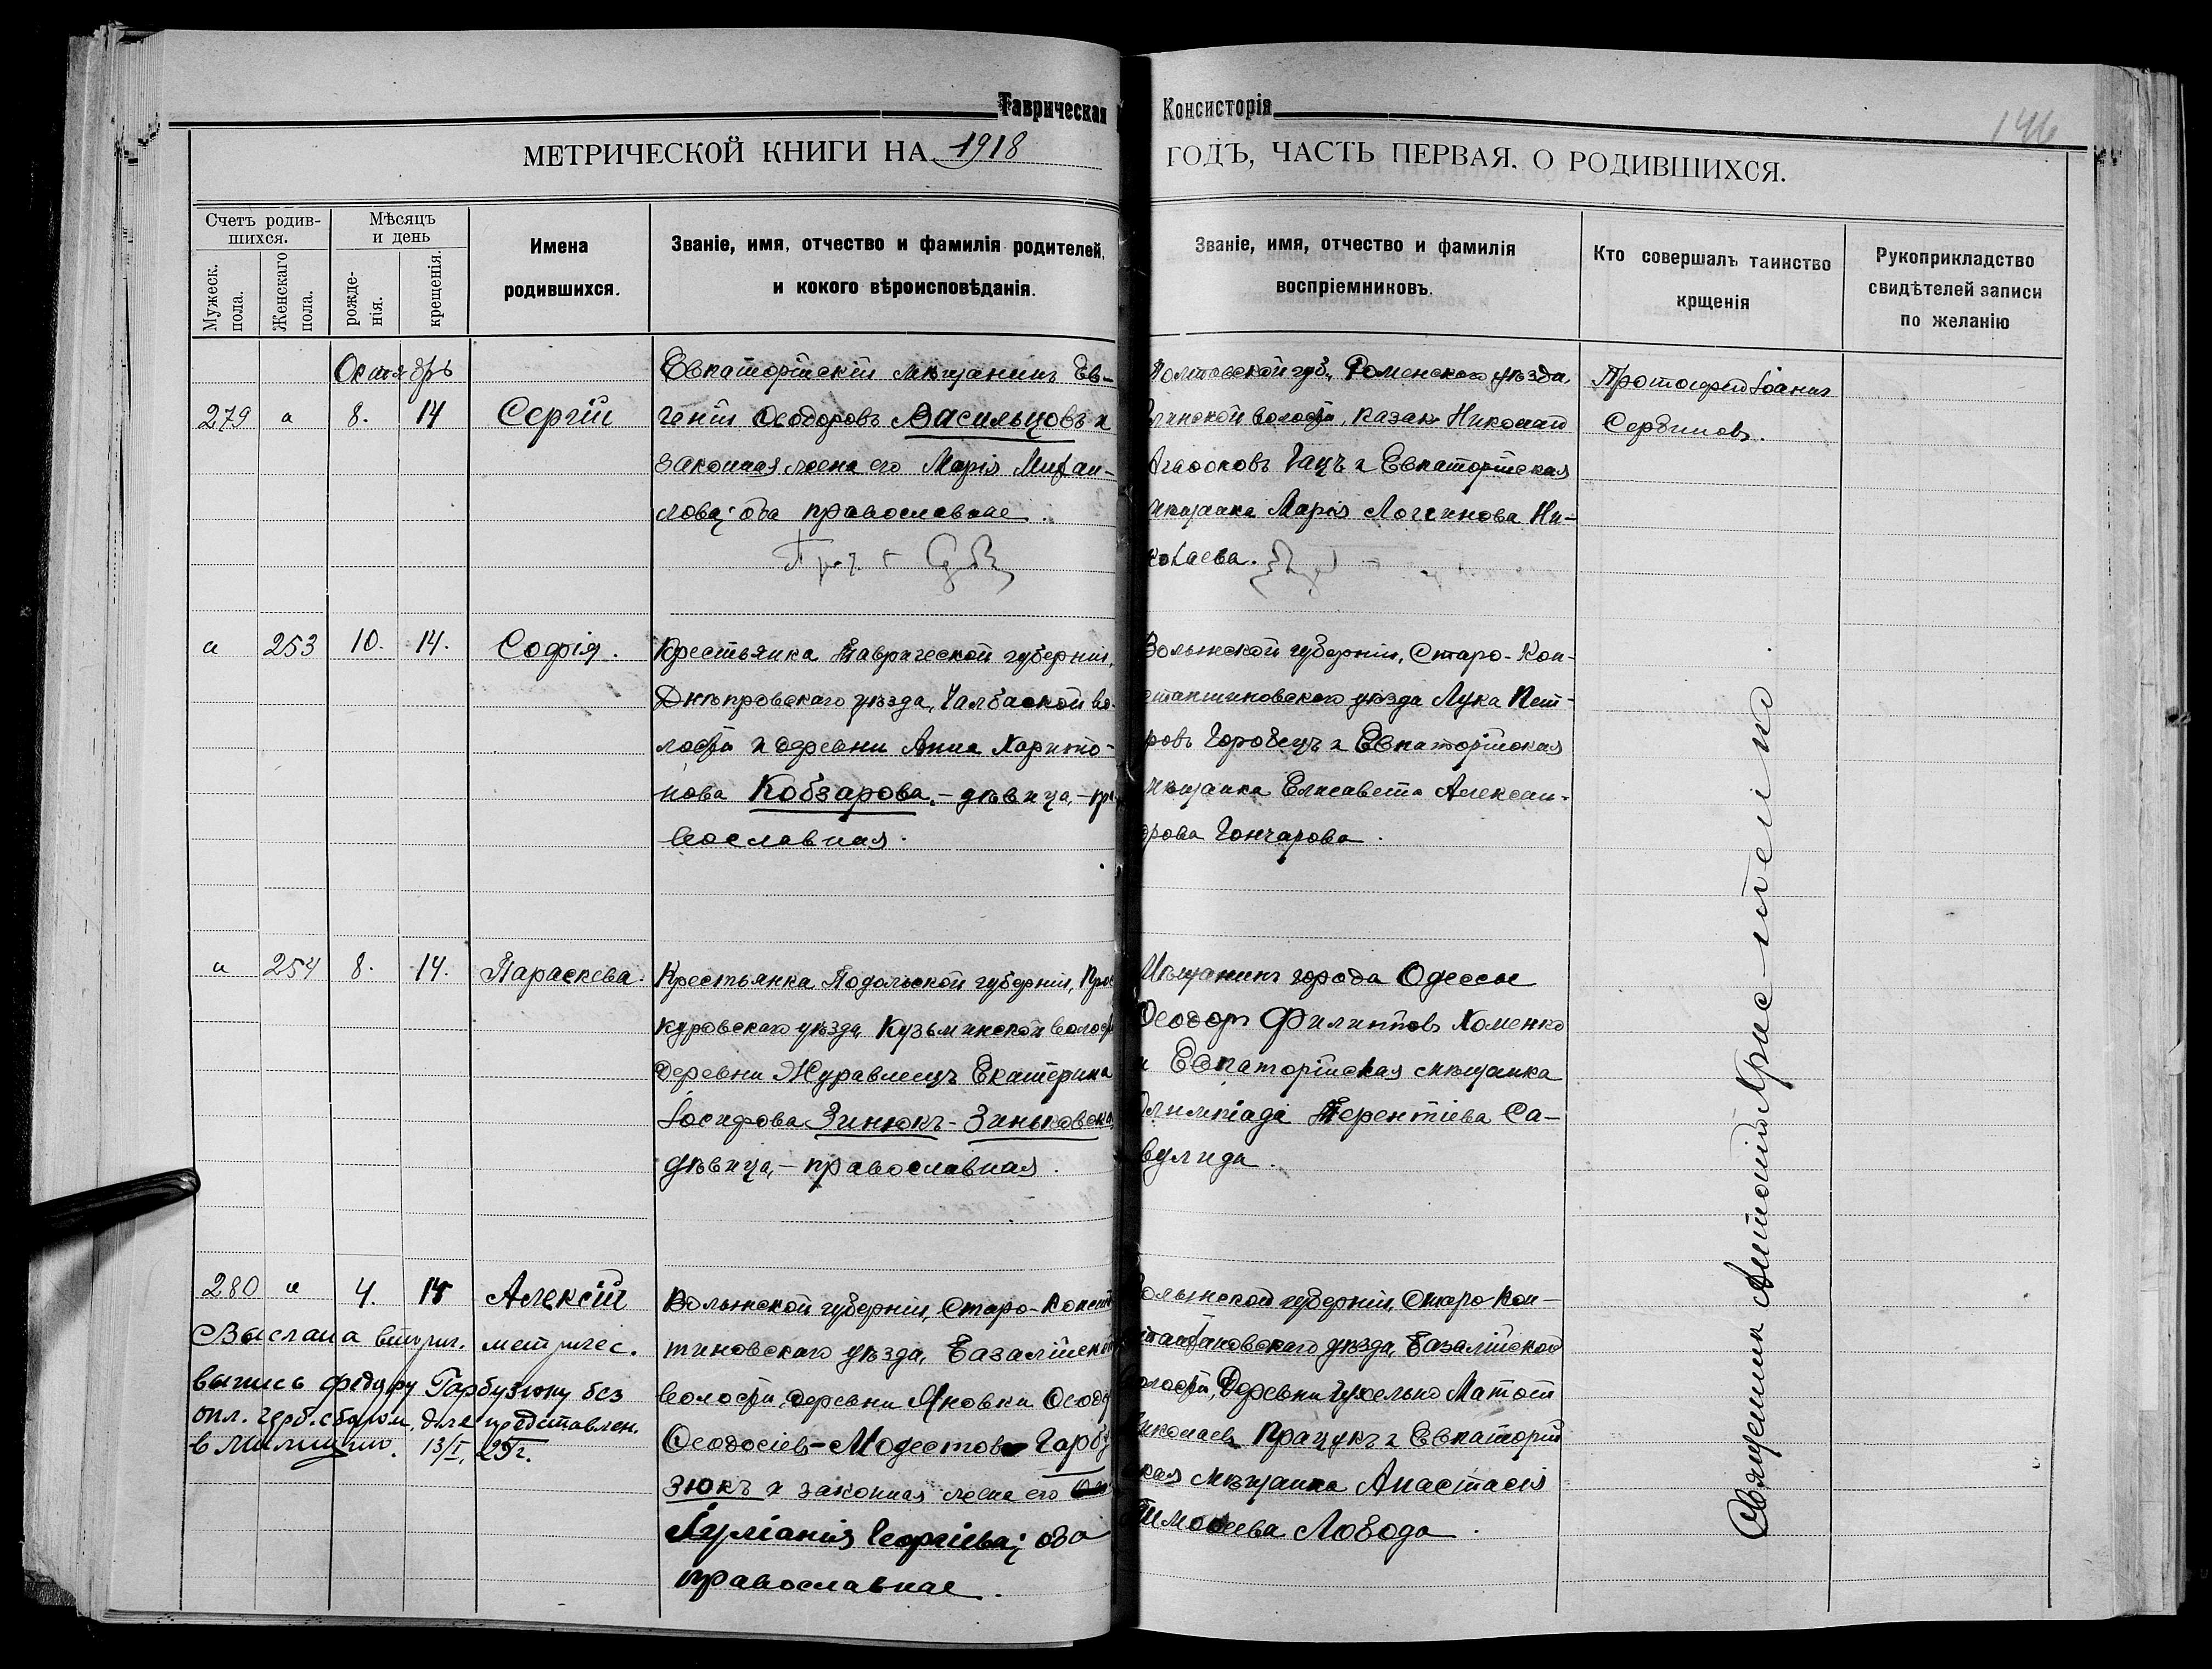 Таврическая Консисторія
146
МЕТРИЧЕСКОЙ КНИГИ НА 1918 ГОДЪ, ЧАСТЬ ПЕРВАЯ. О РОДИВШИХСЯ.
Счетъ родив-
шихся.
Мужеск.
пола.
Женскаго
пола.
Мѣсяцъ
и день
рожде-
нія.
крещенія.
Имена
родившихся.
Званіе, имя, отчество и фамилія родителей,
и кокого вѣроисповѣданія.
Званіе, имя, отчество и фамилія
воспріемниковъ.
Кто совершалъ таинство
крщенія
Рукоприкладство
свидѣтелей записи
по желанію
Октябрь
279 " 8. 14 Сергій
Евпаторійскій мѣщанинъ Ев-
геній Ѳеодоровъ Васильцовъ и
законная жена его Марія Михаи-
лова; оба православные.
Полтавской губ., Роменскаго уѣзда,
волости, казак Никонъ
Агаѳоновъ Гацъ и Евпаторійская
мѣщанка Марія Логгинова Ни-
колаева.
Протоіерей Іоаннъ
Сербиновъ.
" 253 10. 14. Софія.
Крестьянка Таврической губерніи,
Днѣпровскаго уѣзда, Чалбаской во-
лости и деревни Анна Харито-
нова Кобзарова, - дѣвица, - пра-
вославная.
Волынской губерніи, Старо-Кон-
стантиновскаго уѣзда Лука Пет-
ровъ Горобецъ и Евпаторійская
мѣщанка Елисавета Алексан-
дрова Гончарова.
" 254 8. 14. Параскева.
Крестьянка Подольской губерніи, Прос
куровскаго уѣзда, Кузьминской волости
деревни Журавлецъ Екатерина
Іосифова Зинюкъ-Зиньковска
дѣвица, - православная.
Мѣщанинъ города Одессы
Ѳеодоръ Филипповъ Хоменко
и Евпаторійская мѣщанка
Олимпіада Терентіева Са-
вулиди.
280 " 4. 14 Алексій
Волынской губерніи, Старо-Конста
тиновскаго уѣзда, Базалійской
волости, деревни Яновки Ѳеодо
Ѳеодосіев-Модестовъ Гарбу
зюкъ и законная жена его
Іуліанія Георгіева; оба
православные.
Волынской губерніи, Старо Кон-
стантиновскаго уѣзда, Базалійской
волости, деревни
Николаевъ Працукъ и Евпаторій
ская мѣщанка Анастасія
Тимоѳеева Лобода.
Выслана вторич. метричес.
выпись Федору Гарбузюку без
опл. герб. сбором, для представлен.
в Милицию. 13/I, 25г.
Священник Антоній Христенко